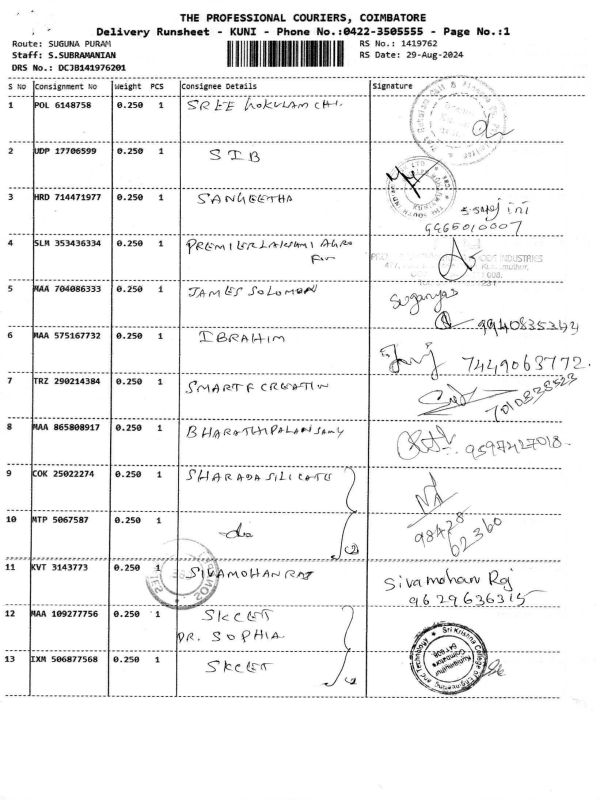 THE PROFESSIONAL COURIERS, COIMBATORE
Delivery Runsheet - KUNI - Phone No.:0422-3505555 - Page No.:1
Route: SUGUNA PURAM
RS No.: 1419762
Staff: S.SUBRAMANIAN
RS Date: 29-Aug-2024
DRS No.: DCJB141976201
S No Consignment No Weight PCS Consignee Details Signature
1 POL 6148758 0.250 1 SREE GOKULAM CHI.
2 UDP 17706599 0.250 1 SIB
3 HRD 714471977 0.250 1 SANGEETHA
9965010007
4 SLM 353436334 0.250 1 PREMIER LAKSHMI AGRO
INDUSTRIES
5 MAA 704086333 0.250 1 JAMES SOLOMON Suganyas
9940835342
6 MAA 575167732 0.250 1 IBRAHIM
7449063772.
7 TRZ 290214384 0.250 1 SMART CREATION
7010838523
8 MAA 865808917 0.250 1 BHARATHI PALANSAMY
9597427018.
9 COK 25022274 0.250 1 SHARADA SILICATE
10 MTP 5067587 0.250 1 do (2)
98428
62360
11 KVT 3143773 0.250 1 SIVAMOHANRAJ Sivamohan Raj
9629636315
12 MAA 109277756 0.250 1 SKCET
DR. SOPHIA
13 IXM 506877568 0.250 1 SKCET
Sri Krishna College of Engineering and Technology
Kuniamuthur
Coimbatore
641 008